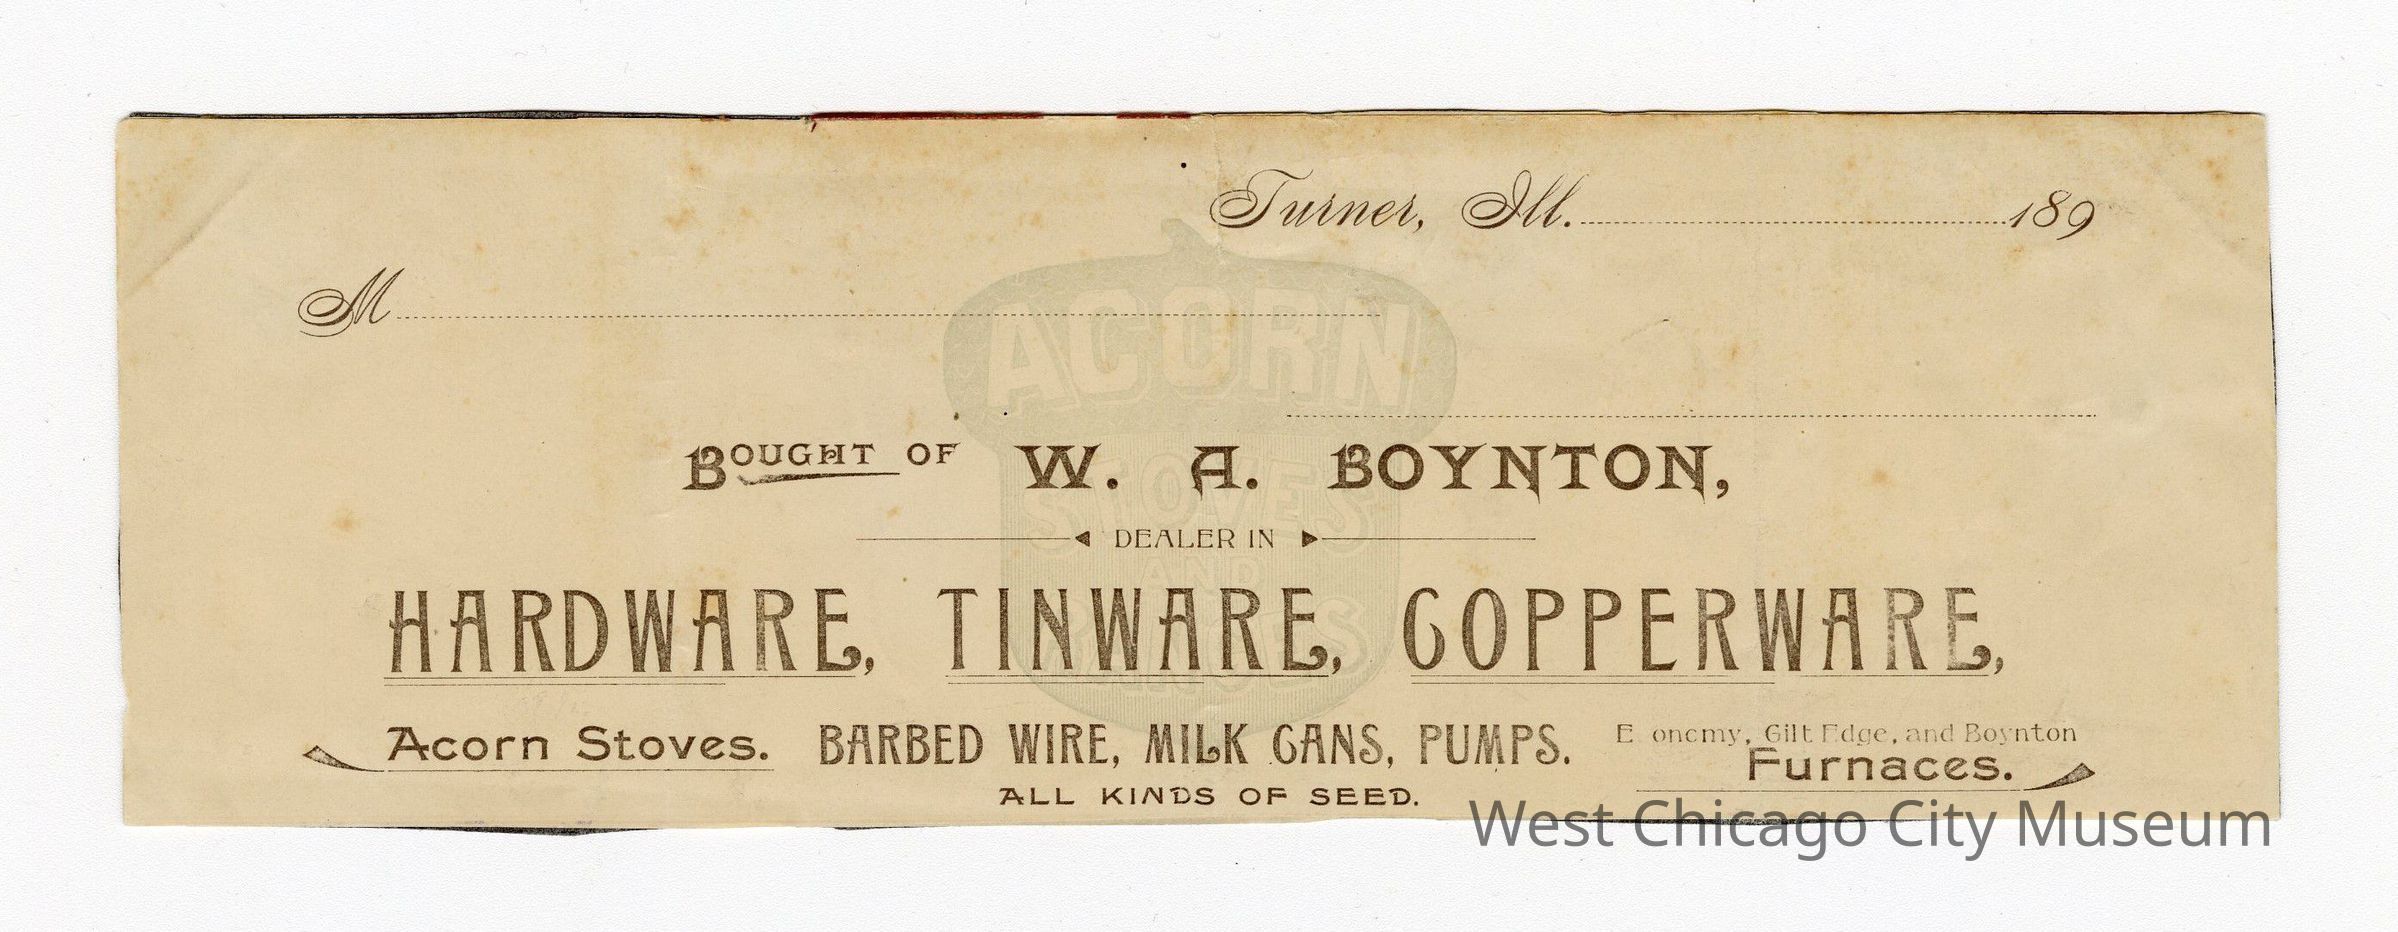 Turner, Ill. 189
M
BOUGHT OF W. A. BOYNTON,
DEALER IN
HARDWARE, TINWARE, COPPERWARE,
Acorn Stoves. BARBED WIRE, MILK CANS, PUMPS. E onomy, Gilt Edge, and Boynton Furnaces.
ALL KINDS OF SEED.
ACORN
STOVES
AND
RANGES
West Chicago City Museum